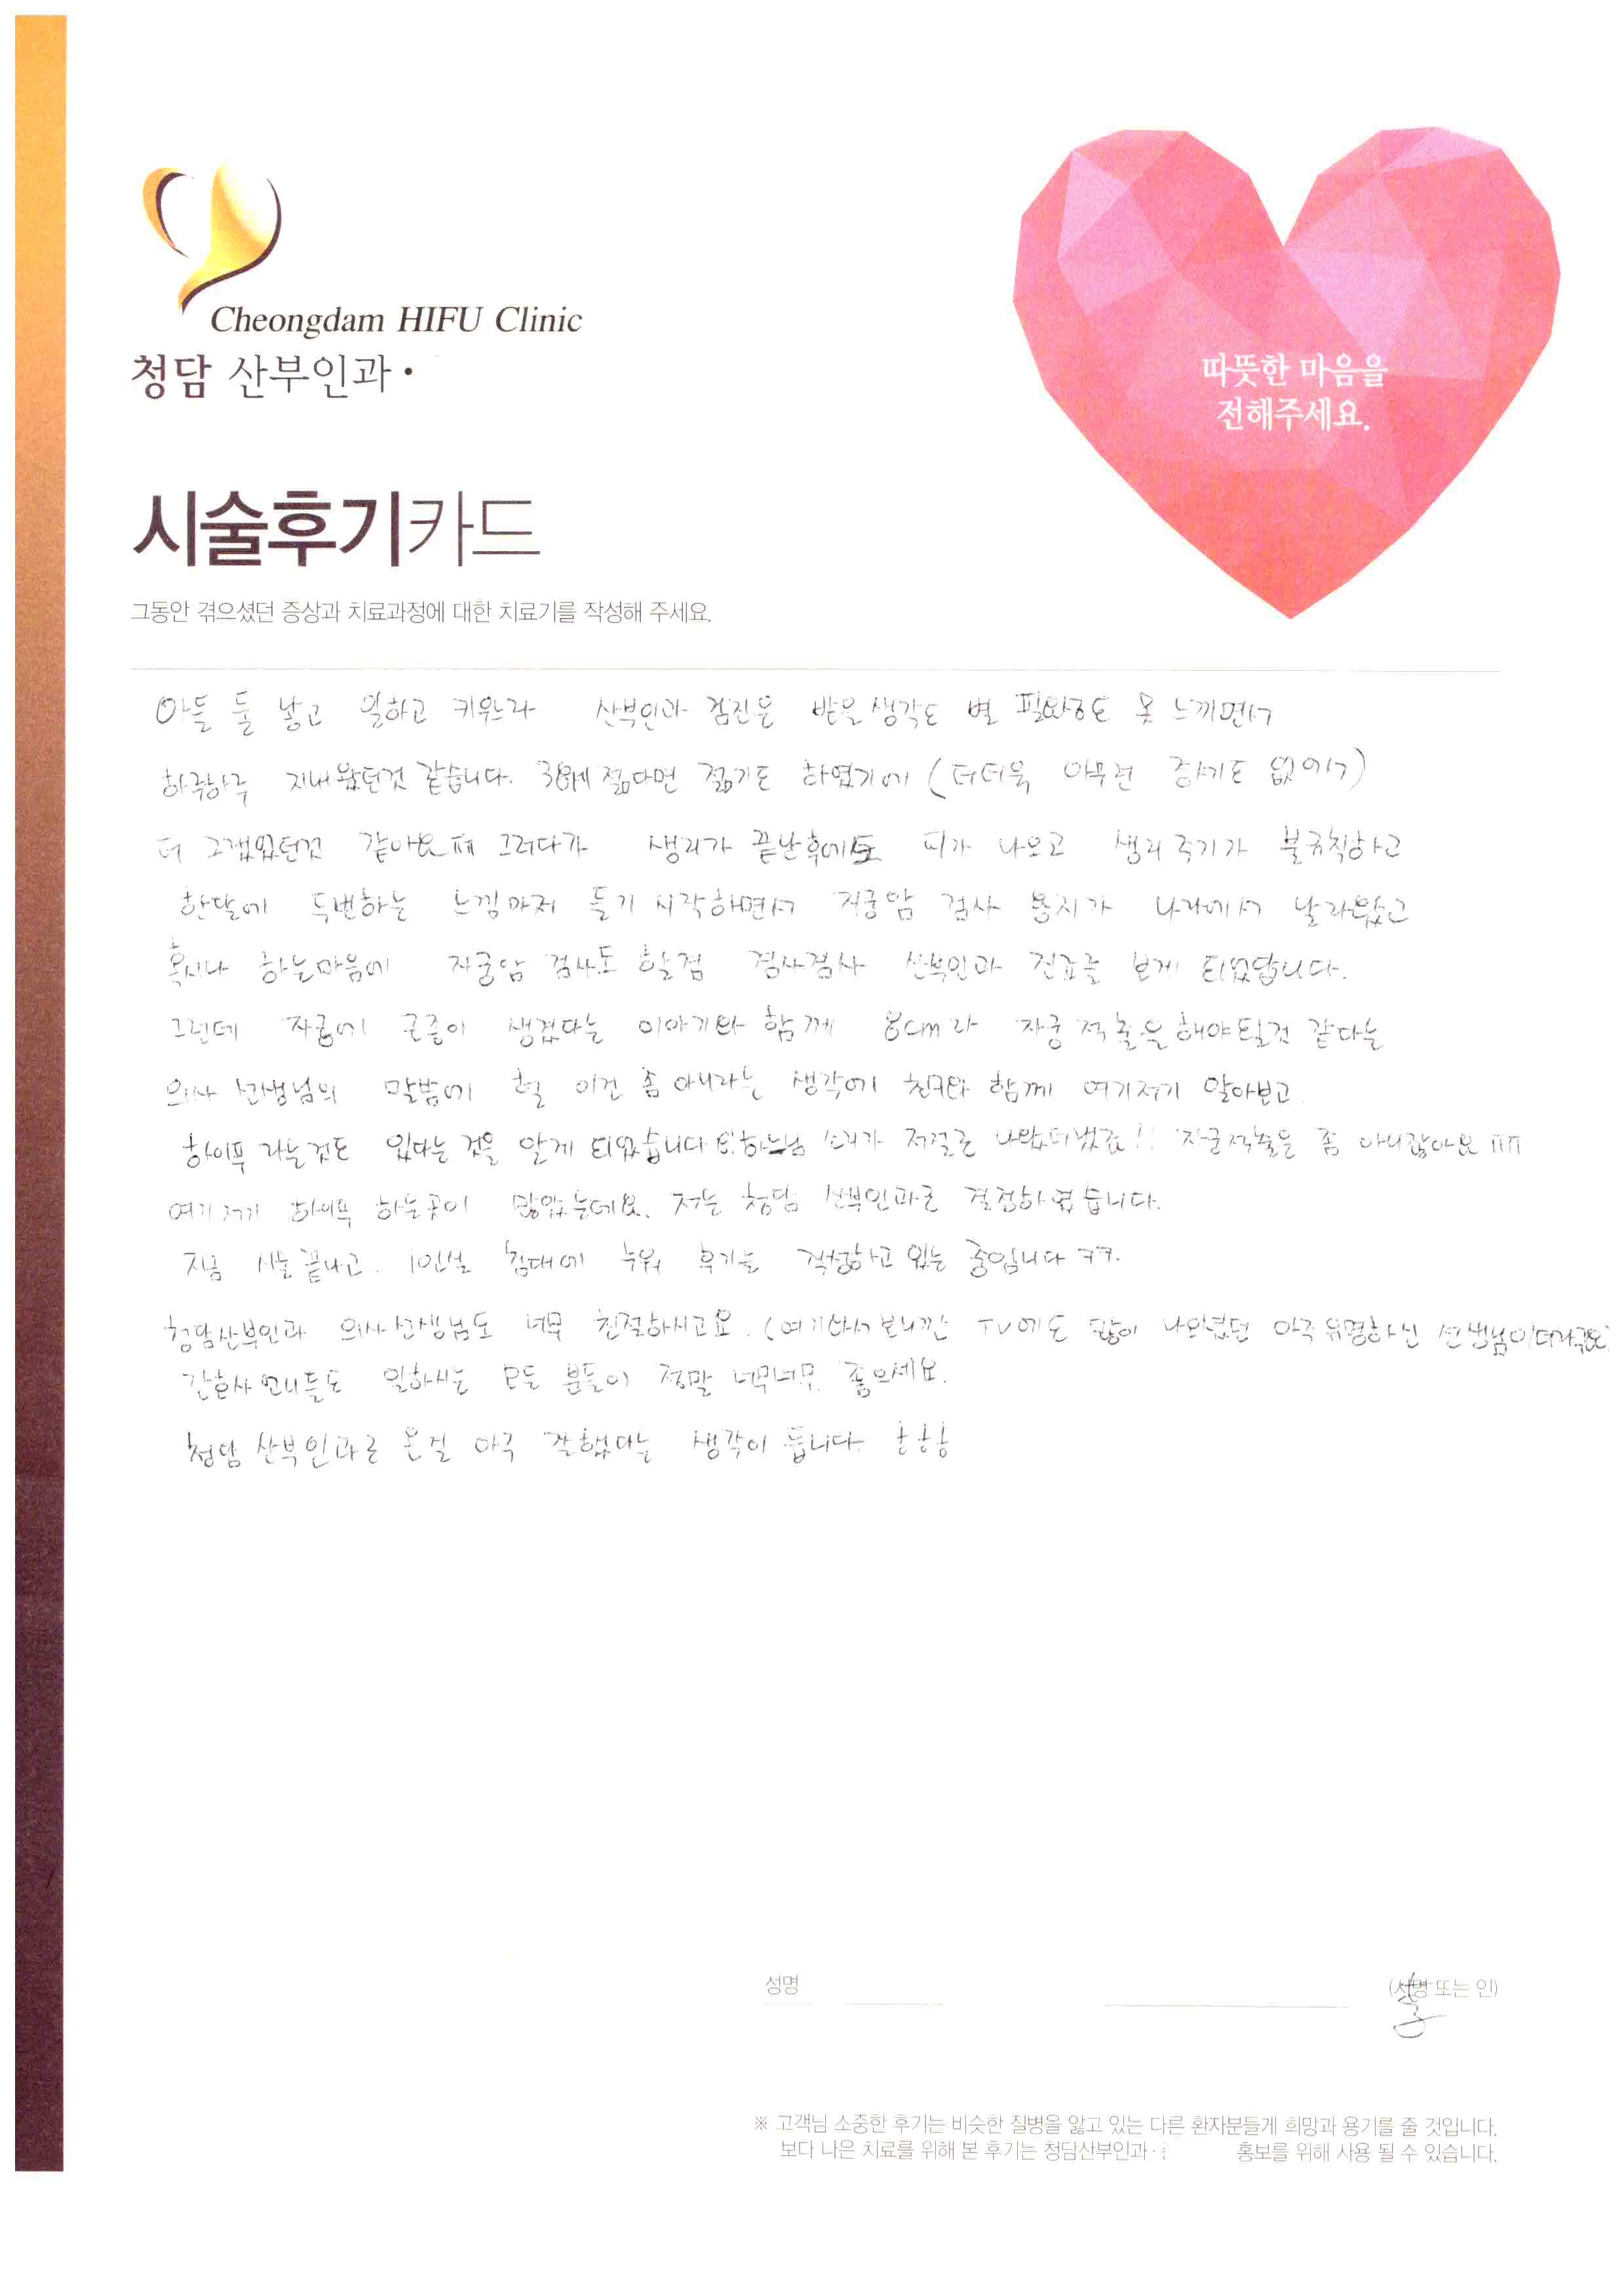 Cheongdam HIFU Clinic
청담 산부인과·
따뜻한 마음을
전해주세요.
시술후기카드
그동안 겪으셨던 증상과 치료과정에 대한 치료기를 작성해 주세요.
아들 둘 낳고 일하고 키우느라 산부인과 검진은 받을 생각도 별 필요성도 못 느끼면서
하루하루 지내왔던것 같습니다. 38세 젊다면 젊기도 하였기에 (더더욱 아무런 증세도 없어서)
더 그랬었던것 같아요 ㅠㅠ 그러다가 생리가 끝난후에도 피가 나오고 생리 주기가 불규칙하고
한달에 두번하는 느낌마저 들기 시작하면서 자궁암 검사 용지가 나라에서 날라왔고
혹시나 하는마음에 자궁암 검사도 할겸 겸사겸사 산부인과 진료를 보게 되었답니다.
그런데 자궁에 근종이 생겼다는 이야기와 함께 8cm라 자궁 적출을 해야될것 같다는
의사 선생님의 말씀에 헐 이건 좀 아니라는 생각에 친구와 함께 여기저기 알아보고
하이푸 라는것도 있다는 것을 알게 되었습니다 소리가 저절로 나왔더랬죠!! 자궁적출은 좀 아니잖아요 ㅠㅠ
여기저기 하이푸 하는곳이 많았는데요. 저는 청담 산부인과로 결정하였습니다.
지금 시술 끝내고. 1인실 침대에 누워 후기를 작성하고 있는 중입니다 ㅋㅋ.
청담산부인과 의사선생님도 너무 친절하시고요. (여기와서 보니깐 TV에도 많이 나오셨던 아주 유명하신 선생님이더라구요)
간호사 언니들도 일하시는 모든 분들이 정말 너무너무 좋으세요.
청담 산부인과로 온걸 아주 잘했다는 생각이 듭니다 ㅎㅎㅎ
성명
(서명 또는 인)
※ 고객님 소중한 후기는 비슷한 질병을 앓고 있는 다른 환자분들게 희망과 용기를 줄 것입니다.
보다 나은 치료를 위해 본 후기는 청담산부인과· 홍보를 위해 사용 될 수 있습니다.